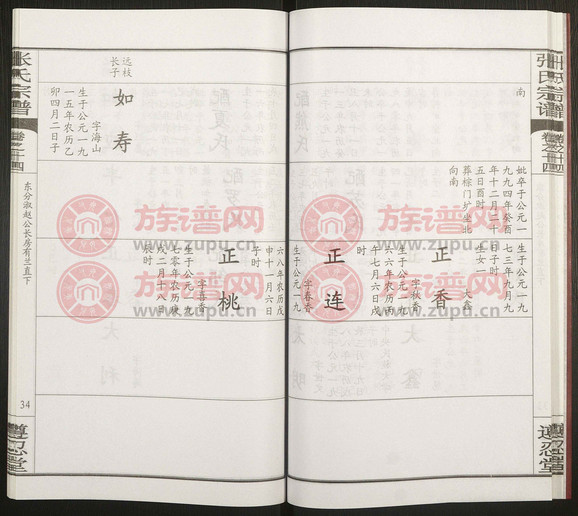 张氏宗谱
卷之十四
遵忍堂
南
妣卒于公元一
九九四年癸酉
年十二月二十
五日酉时
葬棕门圹坐北
向南
生于公元一九
七三年九月九
生女一
大鑫
正香
字枝香
生于公元一九
六六年农历丙
午七月六日戌
时
正连
字春香
生于公元一九
六八年农历戊
申十一月六日
子时
正桃
字喜香
生于公元一九
七零年农历庚
戌二月十八日
辰时
选枝
长子
如寿
字海山
生于公元一九
一五年农历乙
卯四月二日子
张氏宗谱
卷之十四
东分淑赵公长房有兰直下
34
遵忍堂
族谱网
www.zupu.cn
族谱网
www.zupu.cn
族谱网
www.zupu.cn
族谱网
www.zupu.cn